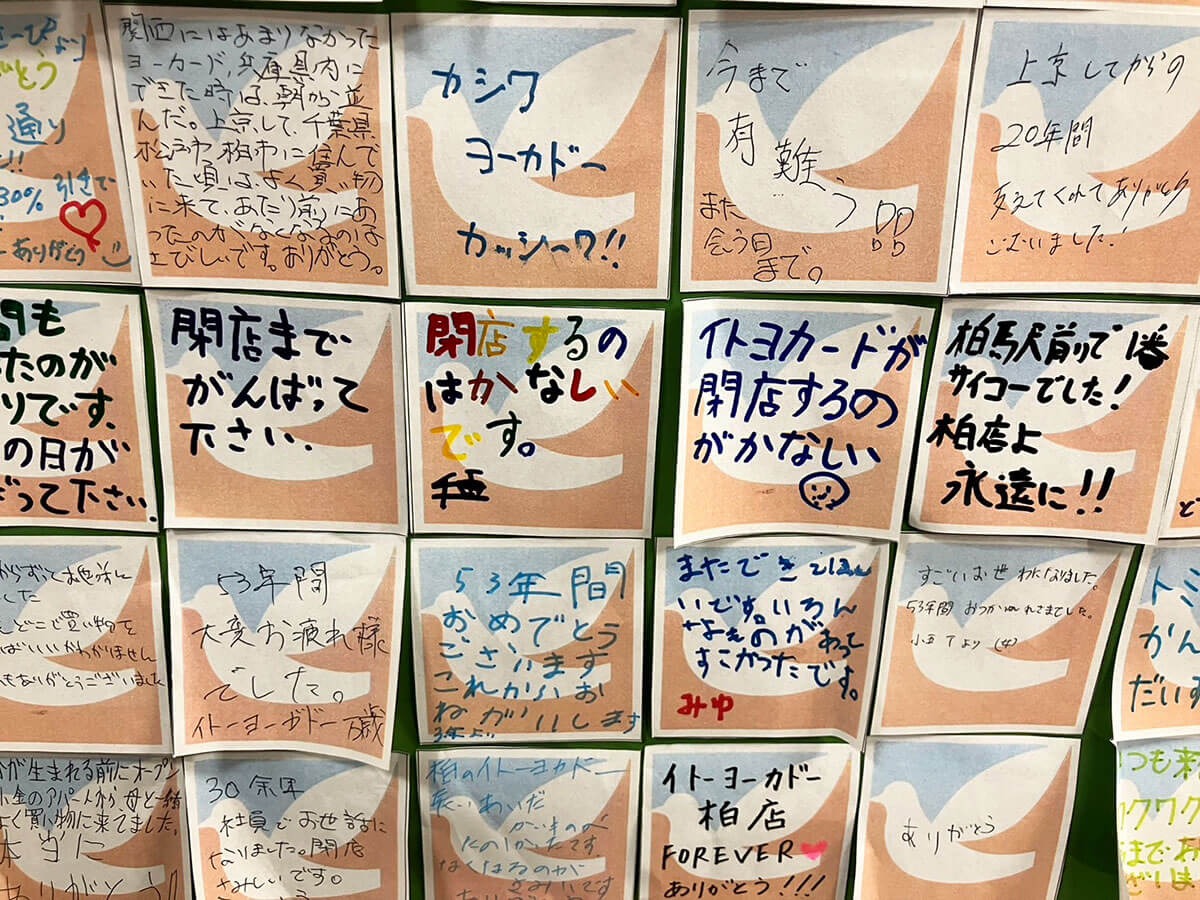 通り
!!
30% 引きで
ーありがとう
関西にはあまりなかった
ヨーカドー、兵庫県内に
できた時は、朝から並
んだ。上京して、千葉県
松戸市、柏市に住んで
いた頃は、よく買い物
に来て、あたり前にあ
ったのがなくなるのは
さびしいです。ありがとう。
カシワ
ヨーカドー
カッシーワ!!
今まで
有難う!!
また
会う日
まで。
上京してからの
20年間
支えてくれてありがとう
ございました!
間も
たのが
りです。
の日が
ばって下さい.
閉店まで
がんばって
下さい.
閉店するの
はかなしい
です。
イトヨカードが
閉店するの
がかないい
柏駅前で1番
サイコーでした!
柏店よ
永遠に!!
からずっとお世話に
した
どこで買い物を
ればいいかわかりません
もありがとうございました
53年間
大変お疲れ様
でした。
イトーヨーカドー万歳
53年間
おめでとう
ございます
これからもお
ねがいします
またできてほし
いです。いろん
なものがあって
すごかったです。
みゆ
すごいお世わになりました。
53年間おつかれさまでした。
トミ
かん
だいす
が生まれる前にオープン
小金のアパートから母と一緒
よく買い物に来てました。
本当に
ありがとう!!
30余年
社員でお世話に
なりました。閉店
さみしいです。
柏のイトーヨーカドー
長いあいだ
かいものが
たのしかったです
なくなるのが
さみしいです
イトーヨーカドー
柏店
FOREVER
ありがとう!!!
ありがとう
つも来
クワク